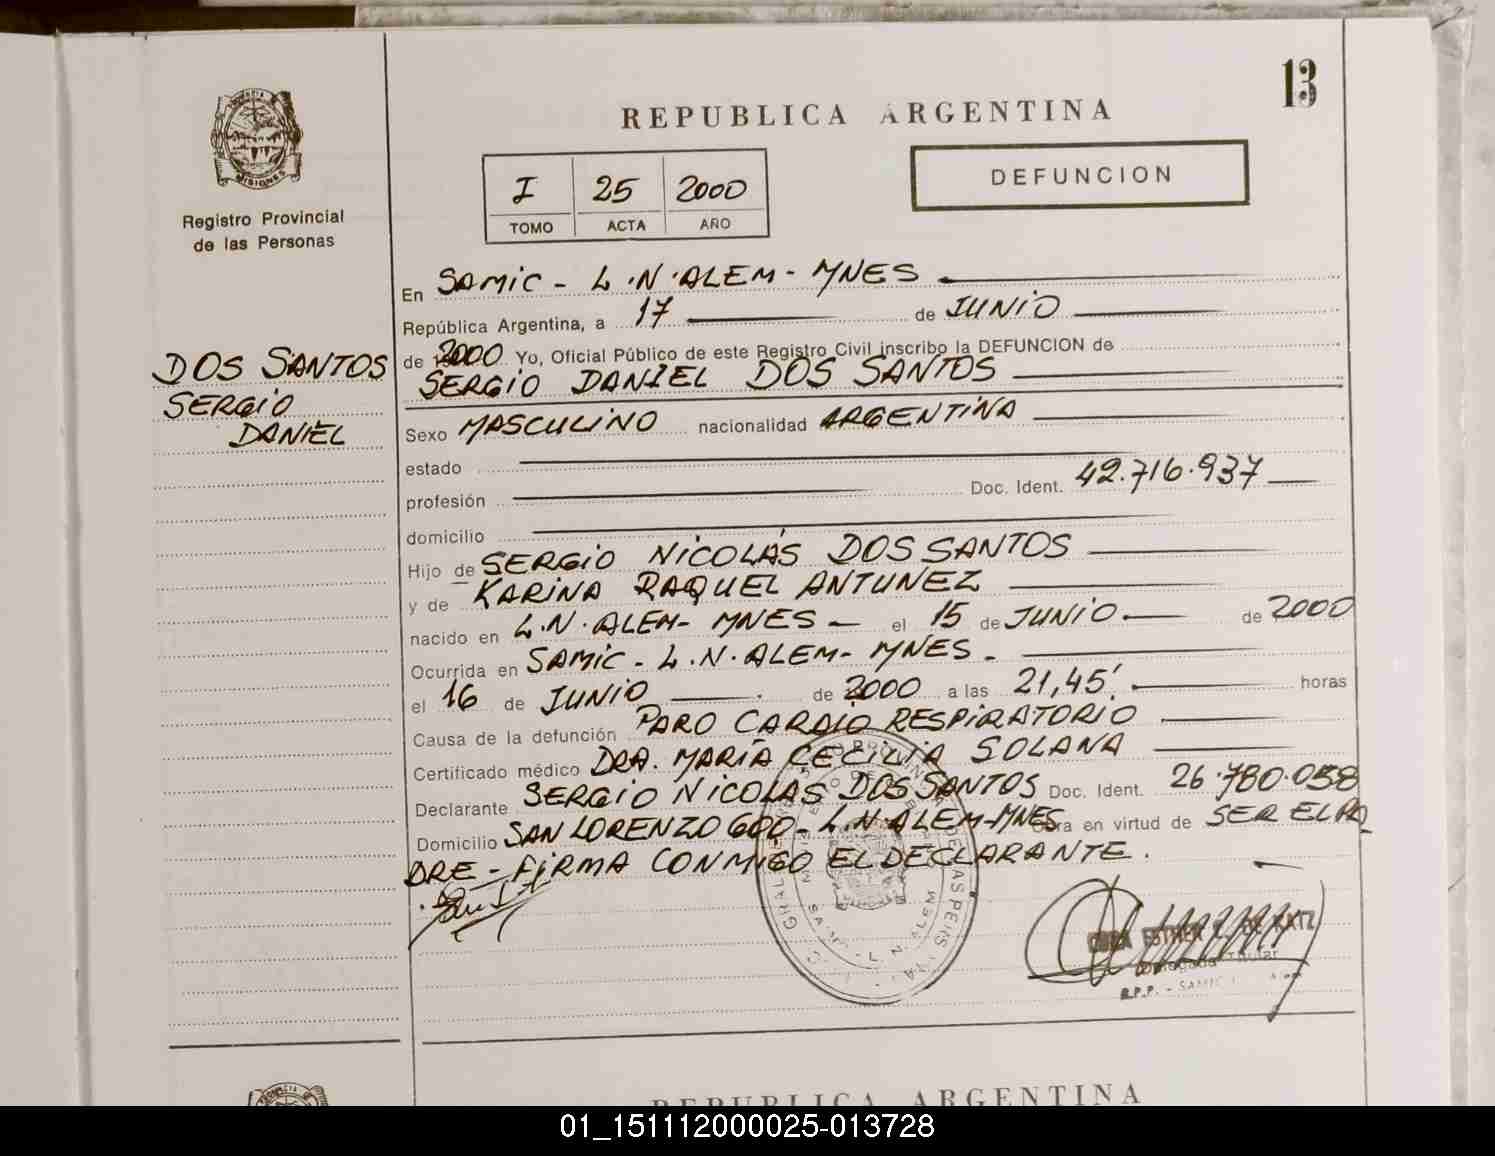 13
REPUBLICA ARGENTINA
I 25 2000
TOMO ACTA AÑO
DEFUNCION
MISIONES
Registro Provincial
de las Personas
DOS SANTOS
SERGIO
DANIEL
En SAMIC - L.N. ALEM - MNES
República Argentina, a 17 de JUNIO
de 2000 Yo, Oficial Público de este Registro Civil inscribo la DEFUNCION de
SERGIO DANIEL DOS SANTOS
Sexo MASCULINO nacionalidad ARGENTINA
estado
profesión Doc. Ident. 42.716.937
domicilio
Hijo de SERGIO NICOLÁS DOS SANTOS
y de KARINA RAQUEL ANTUNEZ
nacido en L.N. ALEM - MNES - el 15 de JUNIO de 2000
Ocurrida en SAMIC - L.N. ALEM - MNES -
el 16 de JUNIO de 2000 a las 21,45' horas
Causa de la defunción PARO CARDIO RESPIRATORIO
Certificado médico DRA. MARÍA CECILIA SOLANA
Declarante SERGIO NICOLAS DOS SANTOS Doc. Ident. 26.780.058
Domicilio SAN LORENZO 600 - L.N. ALEM - MNES Obra en virtud de SER EL PA
DRE - FIRMA CONMIGO EL DECLARANTE.
ESTHER DE KATZ
Delegada Titular
R.P.P. - SAMIC
REPUBLICA ARGENTINA
01_151112000025-013728